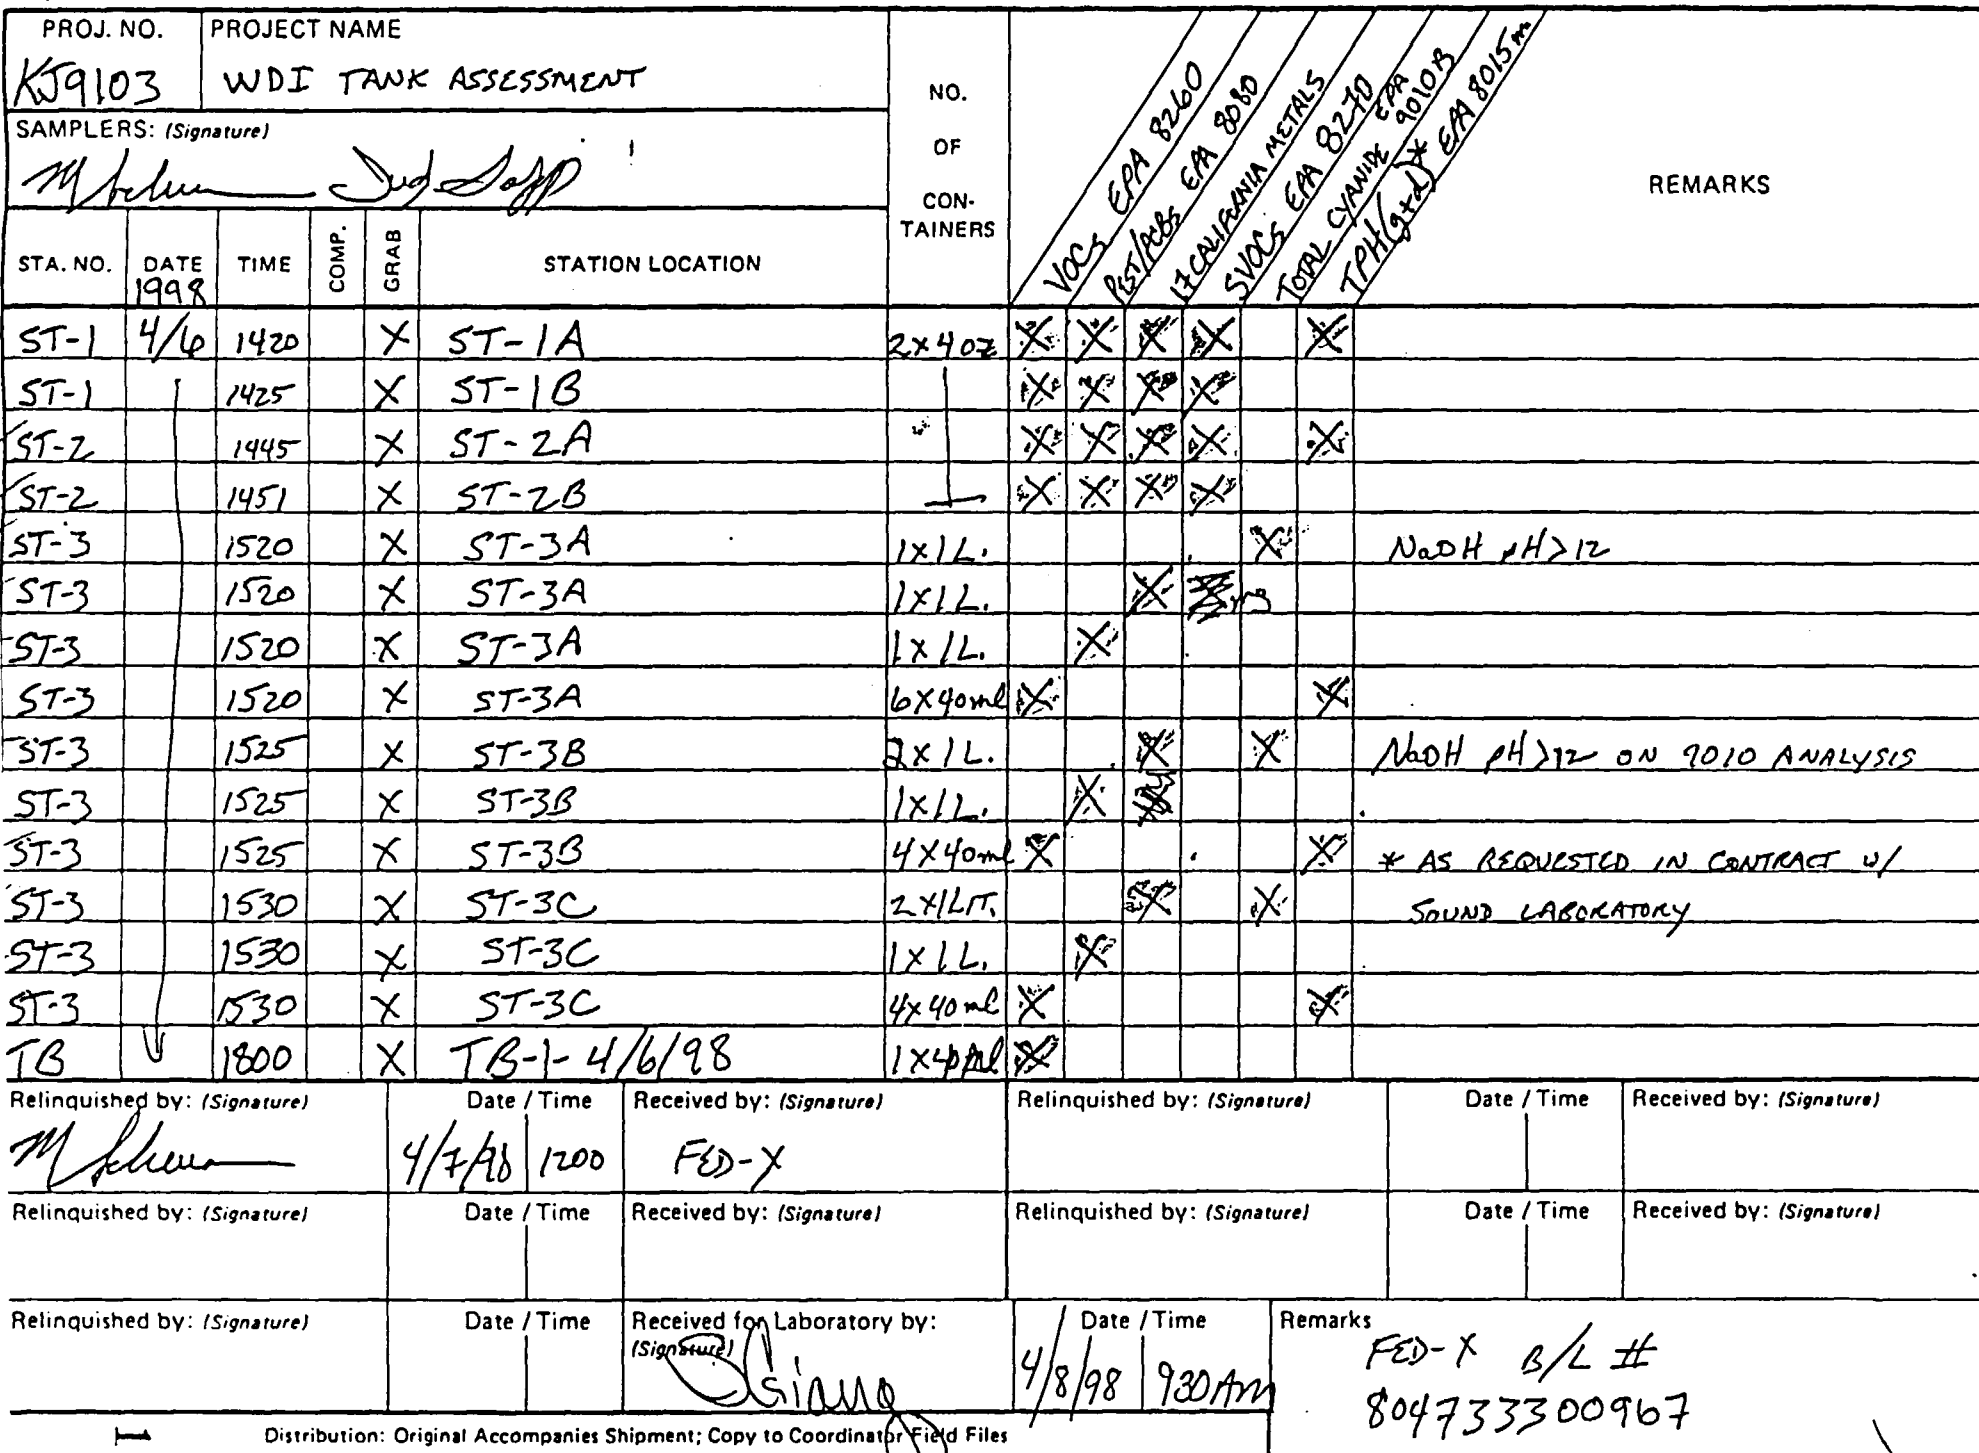 PROJ. NO. PROJECT NAME
KJ9103 WDI TANK ASSESSMENT
SAMPLERS: (Signature)
NO. OF CON-TAINERS
VOCs EPA 8260
PEST/PCBs EPA 8080
17 CALIFORNIA METALS
SVOCs EPA 8270
TOTAL CYANIDE EPA 9010B
TPH(g+d)* EPA 8015m
REMARKS
STA. NO. DATE TIME COMP. GRAB STATION LOCATION
1998
ST-1 4/6 1420 X ST-1A 2x4oz X X X X X
ST-1 1425 X ST-1B X X X X
ST-2 1445 X ST-2A X X X X X
ST-2 1451 X ST-2B X X X X
ST-3 1520 X ST-3A 1x1L. X NaOH pH>12
ST-3 1520 X ST-3A 1x1L. X
ST-3 1520 X ST-3A 1x1L. X
ST-3 1520 X ST-3A 6x40ml X X
ST-3 1525 X ST-3B 2x1L. X X NaOH pH>12 ON 9010 ANALYSIS
ST-3 1525 X ST-3B 1x1L. X
ST-3 1525 X ST-3B 4x40ml X X * AS REQUESTED IN CONTRACT w/
ST-3 1530 X ST-3C 2x1LIT. X X SOUND LABORATORY
ST-3 1530 X ST-3C 1x1L. X
ST-3 1530 X ST-3C 4x40ml X X
TB 1800 X TB-1-4/6/98 1x40ml X
Relinquished by: (Signature) Date / Time Received by: (Signature) Relinquished by: (Signature) Date / Time Received by: (Signature)
4/7/98 1200 FED-X
Relinquished by: (Signature) Date / Time Received by: (Signature) Relinquished by: (Signature) Date / Time Received by: (Signature)
Relinquished by: (Signature) Date / Time Received for Laboratory by: (Signature) Date / Time Remarks
4/8/98 930 AM FED-X B/L #
804733300967
Distribution: Original Accompanies Shipment; Copy to Coordinator Field Files